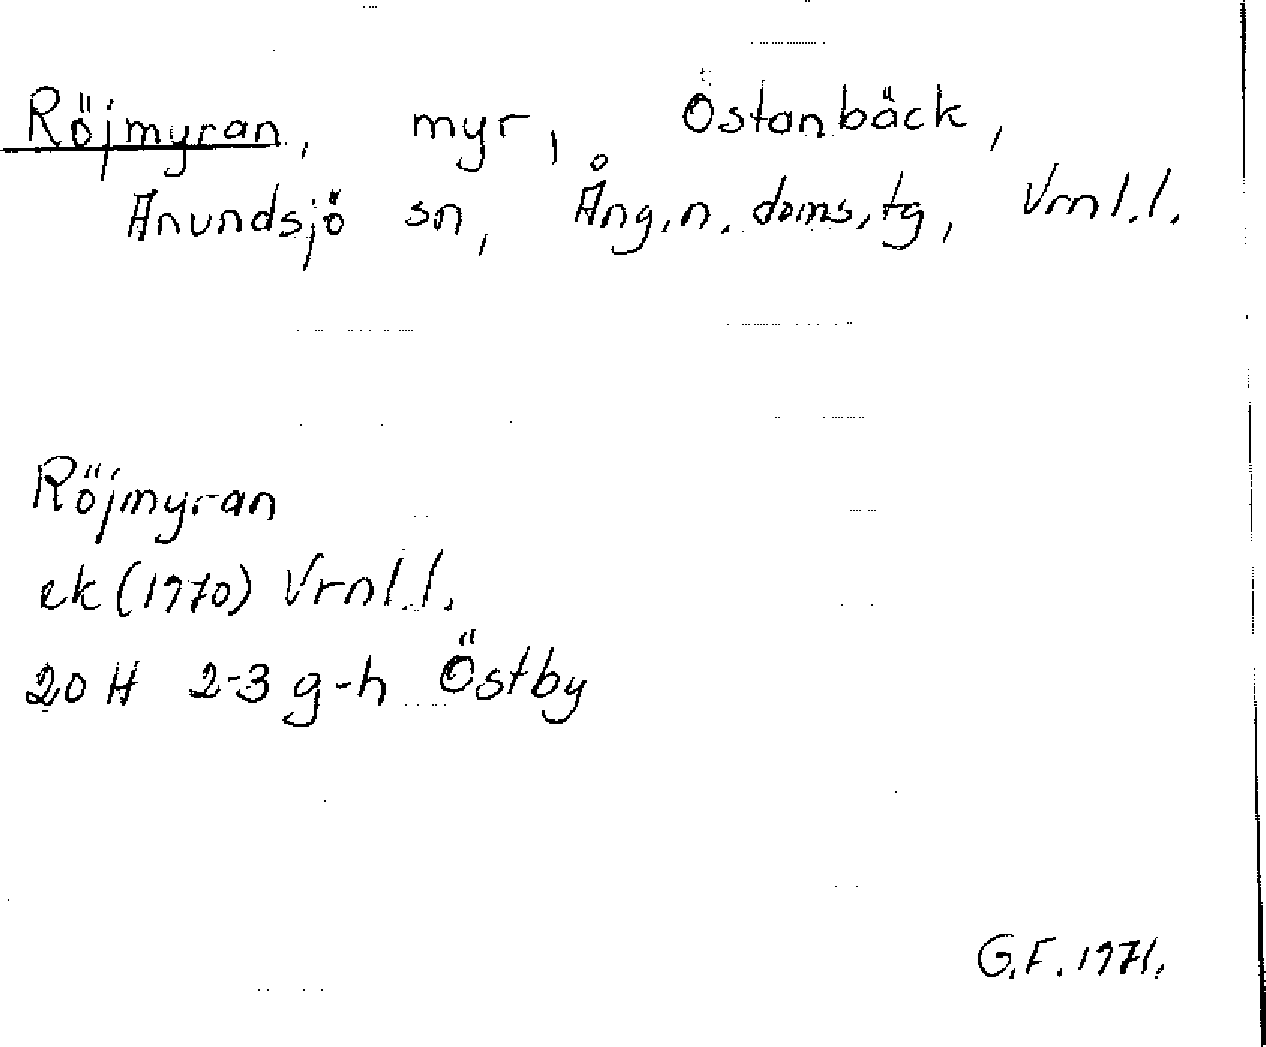 Röjmyran, myr, Östanbäck,
Anundsjö sn, Ång.n. doms.tg, Vrnl.l.
Röjmyran
ek (1970) Vrnl.l.
20 H 2-3 g-h Östby
G.F. 1971.